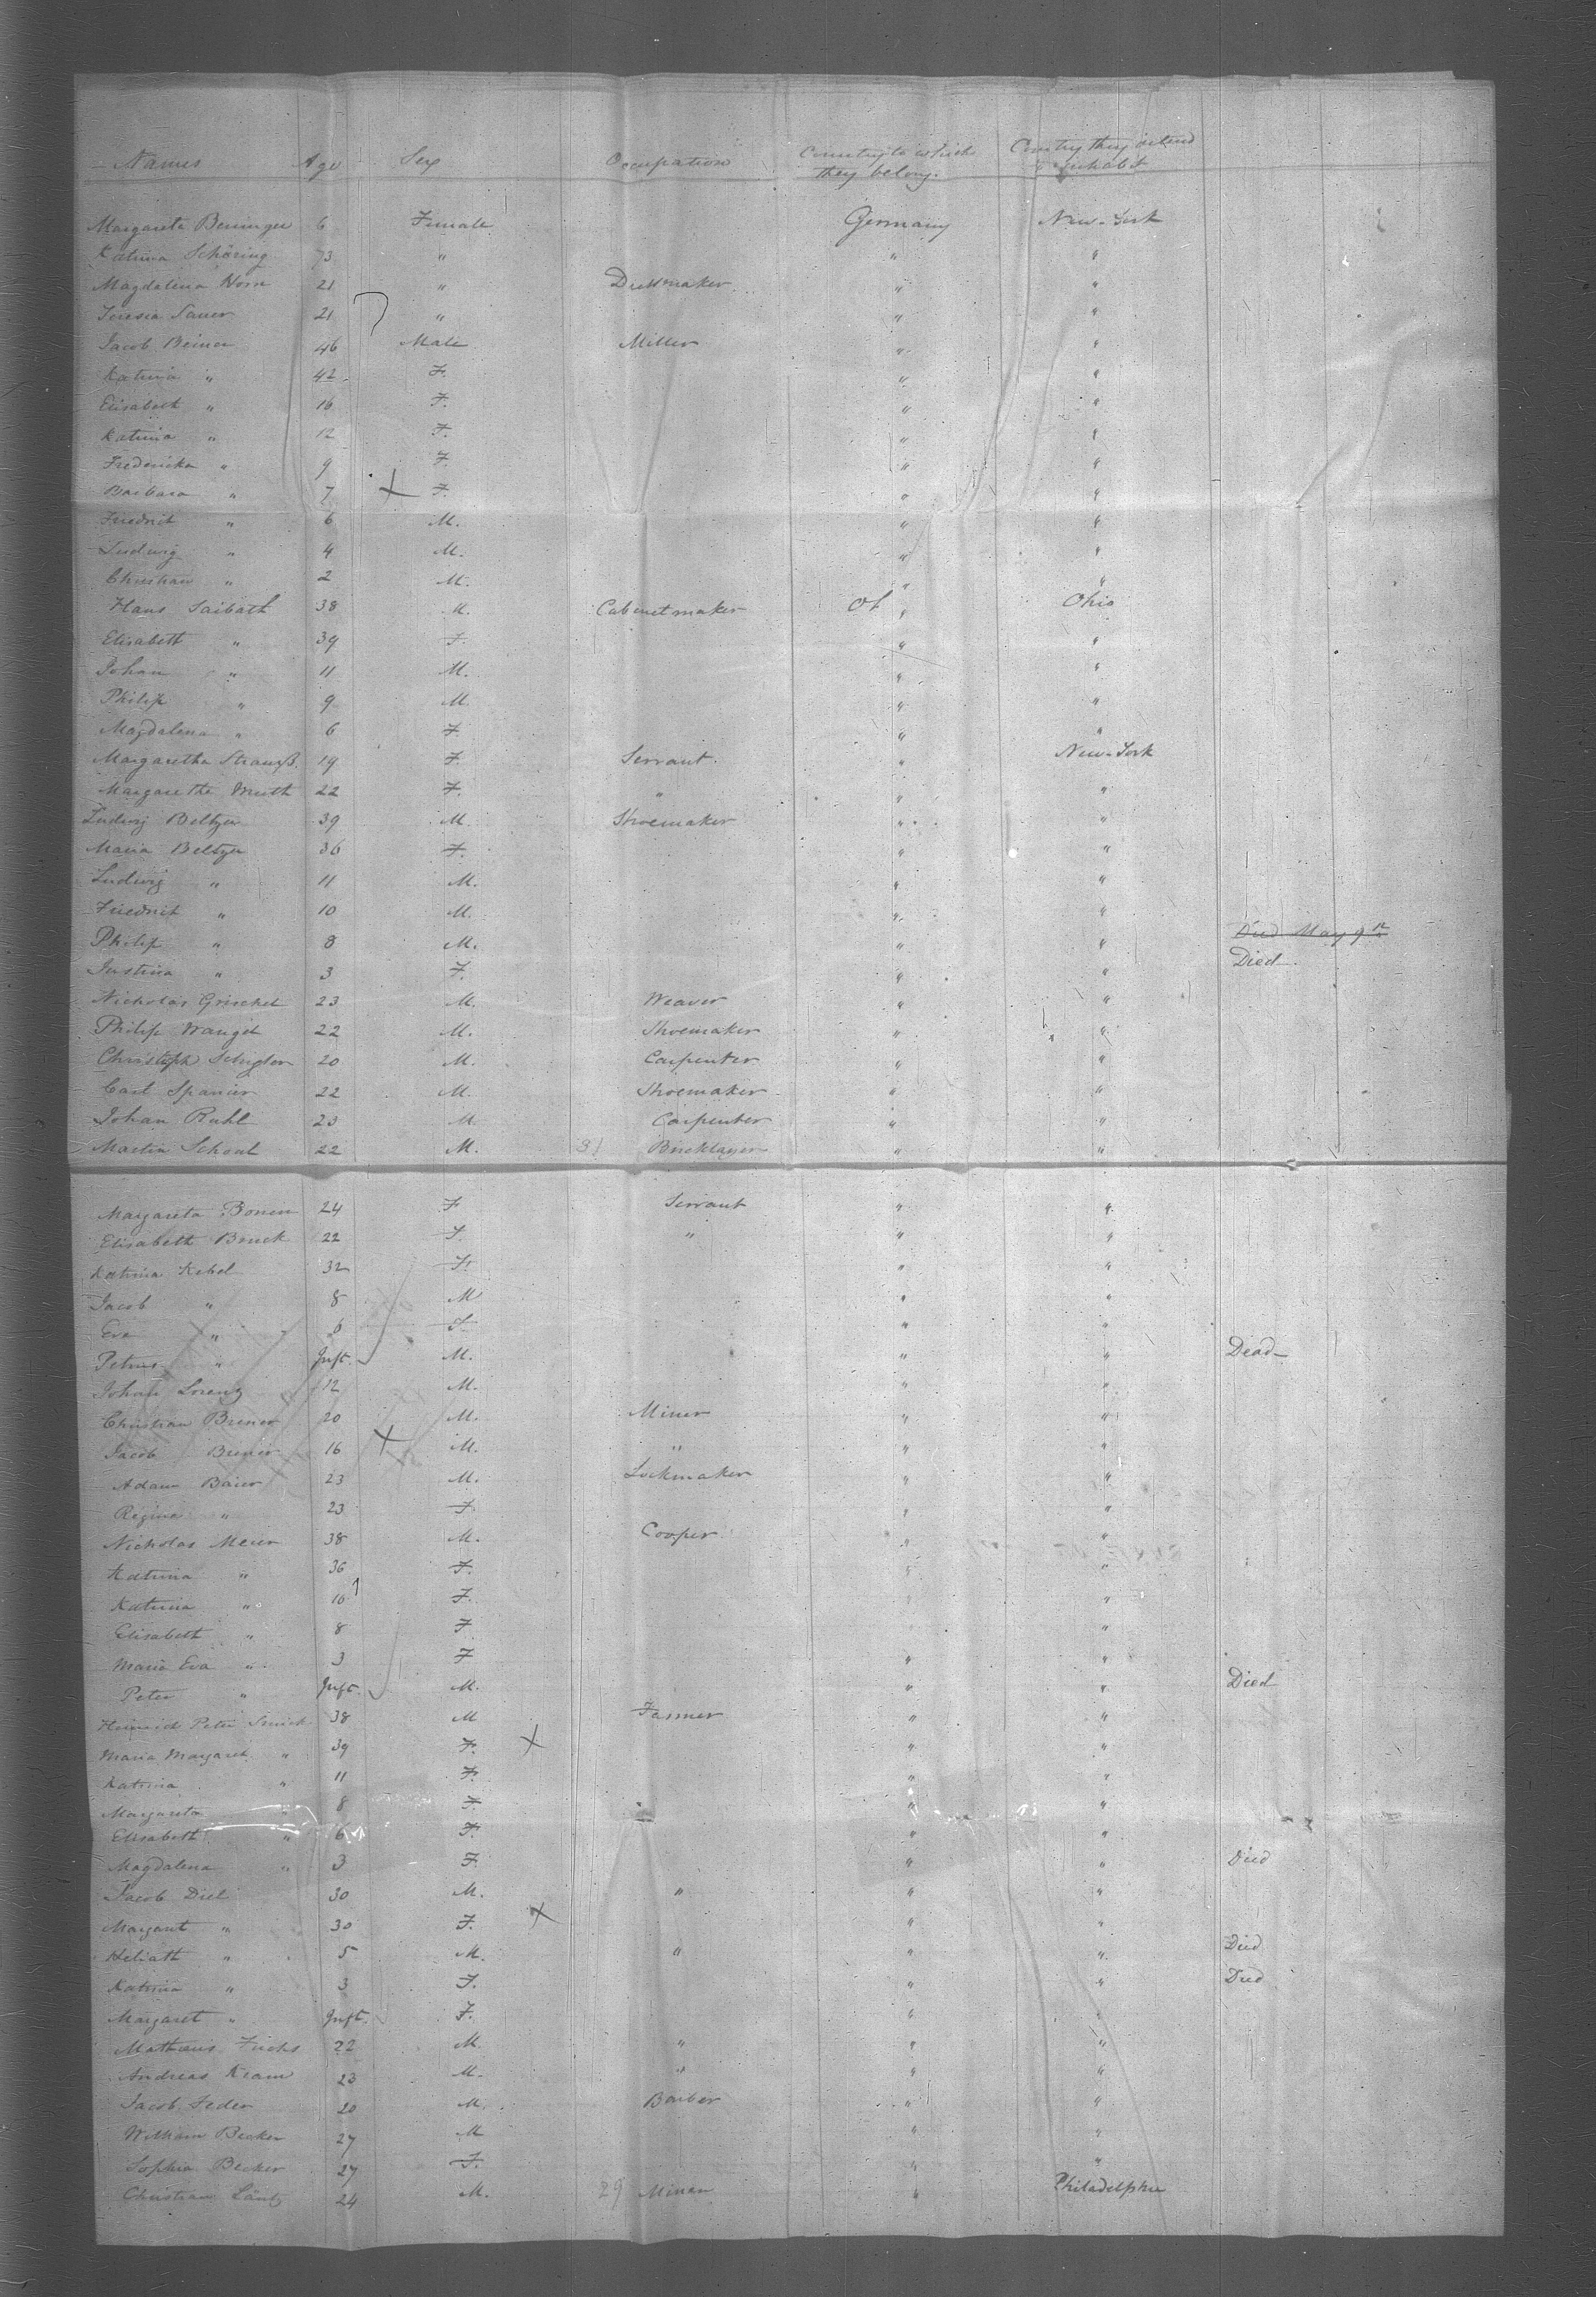 Names Age Sex Occupation Country to which they belong. Country they intend to inhabit
Margareta Beringer 6 Female Germany New-York
Katrina Schöring 73 " " "
Magdalena Horn 21 " Dressmaker " "
Teresia Sauer 21 " " "
Jacob Beiner 46 Male Miller " "
Katrina " 42 F. " "
Elisabeth " 16 F. " "
Katrina " 12 F. " "
Fredericka " 9 F. " "
Barbara " 7 F. " "
Friedrich " 6 M. " "
Ludwig " 4 M. " "
Christian " 2 M. " "
Hans Saibath 38 M. Cabinetmaker Of " Ohio
Elisabeth " 39 F. " "
Johan " 11 M. " "
Philip " 9 M. " "
Magdalena " 6 F. " "
Margaretha Strauß 19 F. Servant " New-York
Margarethe Muth 22 F. " " "
Ludwig Beltzer 39 M. Shoemaker " "
Maria Beltzer 36 F. " "
Ludwig " 11 M. " "
Friedrich " 10 M. " "
Philip " 8 M. " " Died May 9th
Justina " 3 F. " " Died
Nicholas Grischel 23 M. Weaver " "
Philip 22 M. Shoemaker " "
Christoph 20 M. Carpenter " "
Carl Spanier 22 M. Shoemaker " "
Johan Ruhl 23 M. Carpenter " "
Martin Schoul 22 M. 31 Bricklayer " "
Margareta Bonin 24 F Servant " "
Elisabeth Bruck 22 F. " " "
Katrina Kebel 32 F. " "
Jacob " 8 M " "
Eva " 6 F. " "
Petrus " Inft. M. " " Dead
Johan Lorenz 12 M. " "
Christian Breiner 20 M. Miner " "
Jacob Breiner 16 M. " " "
Adam Baier 23 M. Lockmaker " "
Regina " 23 F. " "
Nicholas Meier 38 M. Cooper " "
Katrina " 36 F. " "
Katrina " 10 F. " "
Elisabeth " 8 F " "
Maria Eva " 3 F " "
Peter " Inft. M. " " Died
Heinrich Peter 38 M Farmer " "
Maria Margaret " 39 F. " "
Katrina " 11 F. " "
Margareta " 8 F. " "
Elisabeth " 6 F. " "
Magdalena " 3 F. " " Died
Jacob Diel 30 M. " " "
Margaret " 30 F. " "
Heliath " 5 M. " " " Died
Katrina " 3 F. " " Died
Margaret " Inft. F. " "
Matheus Fuchs 22 M. " " "
Andreas Kram 23 M. " " "
Jacob Feder 20 M. Barber " "
William Becker 27 M " "
Sophia Becker 27 F. " "
Christian Läntz 24 M. 29 Miner " Philadelphia